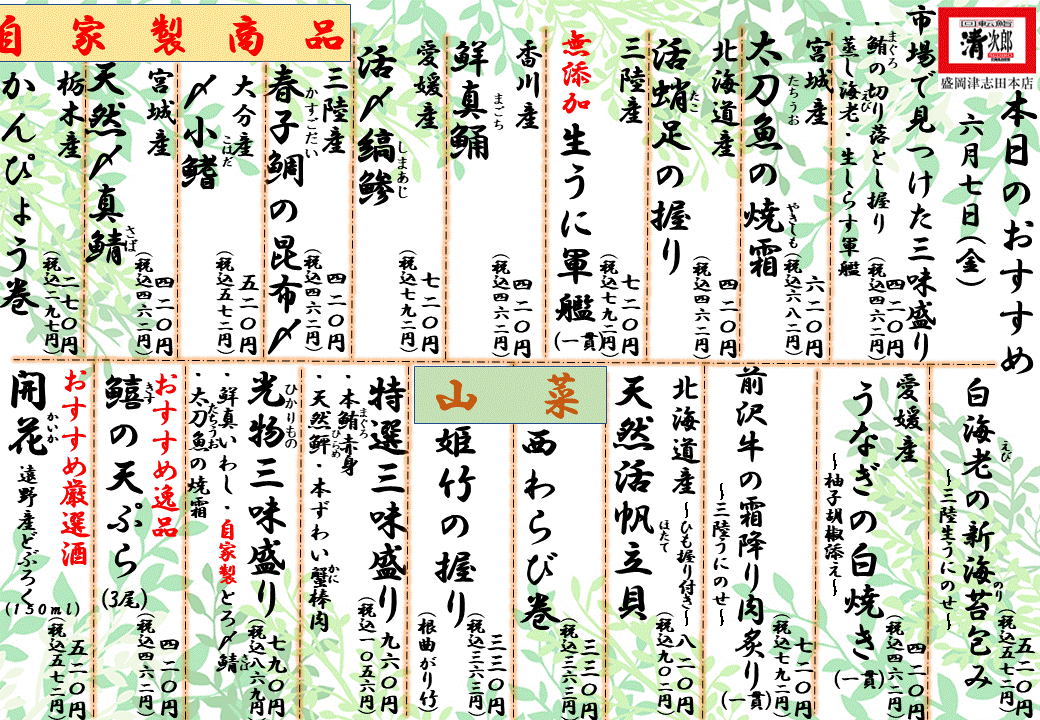 回転鮨
清次郎
盛岡津志田本店
本日のおすすめ
六月七日(金)
市場で見つけた三味盛り
・鮪の切り落とし握り
まぐろ
・蒸し海老・生しらす軍艦
えび
四二〇円
(税込四六二円)
宮城産
太刀魚の焼霜
たちうお
やきしも
六二〇円
(税込六八二円)
北海道産
活蛸足の握り
たこ
四二〇円
(税込四六二円)
三陸産
無添加生うに軍艦
(一貫)
七二〇円
(税込七九二円)
香川産
鮮真鯒
まごち
四二〇円
(税込四六二円)
愛媛産
活〆縞鯵
しまあじ
七二〇円
(税込七九二円)
自家製商品
三陸産
春子鯛の昆布〆
かすごだい
四二〇円
(税込四六二円)
大分産
〆小鰭
こはだ
五二〇円
(税込五七二円)
宮城産
天然〆真鯖
さば
四二〇円
(税込四六二円)
栃木産
かんぴょう巻
二七〇円
(税込二九七円)
白海老の新海苔包み
えび
のり
~三陸生うにのせ~
五二〇円
(税込五七二円)
愛媛産
うなぎの白焼き
~柚子胡椒添え~
(一貫)
四二〇円
(税込四六二円)
前沢牛の霜降り肉炙り
~三陸うにのせ~
(一貫)
七二〇円
(税込七九二円)
北海道産
~ひも握り付き~
天然活帆立貝
ほたて
八二〇円
(税込九〇二円)
山菜
西わらび巻
三三〇円
(税込三六三円)
姫竹の握り
(根曲がり竹)
三三〇円
(税込三六三円)
特選三味盛り
・本鮪赤身
まぐろ
・天然鮃・本ずわい蟹棒肉
ひらめ
かに
九六〇円
(税込一、〇五六円)
光物三味盛り
ひかりもの
・鮮真いわし・自家製とろ〆鯖
・太刀魚の焼霜
たちうお
七九〇円
(税込八六九円)
おすすめ逸品
鱚の天ぷら
きす
(3尾)
四二〇円
(税込四六二円)
おすすめ厳選酒
開花
かいか
遠野産どぶろく
(150ml)
五二〇円
(税込五七二円)